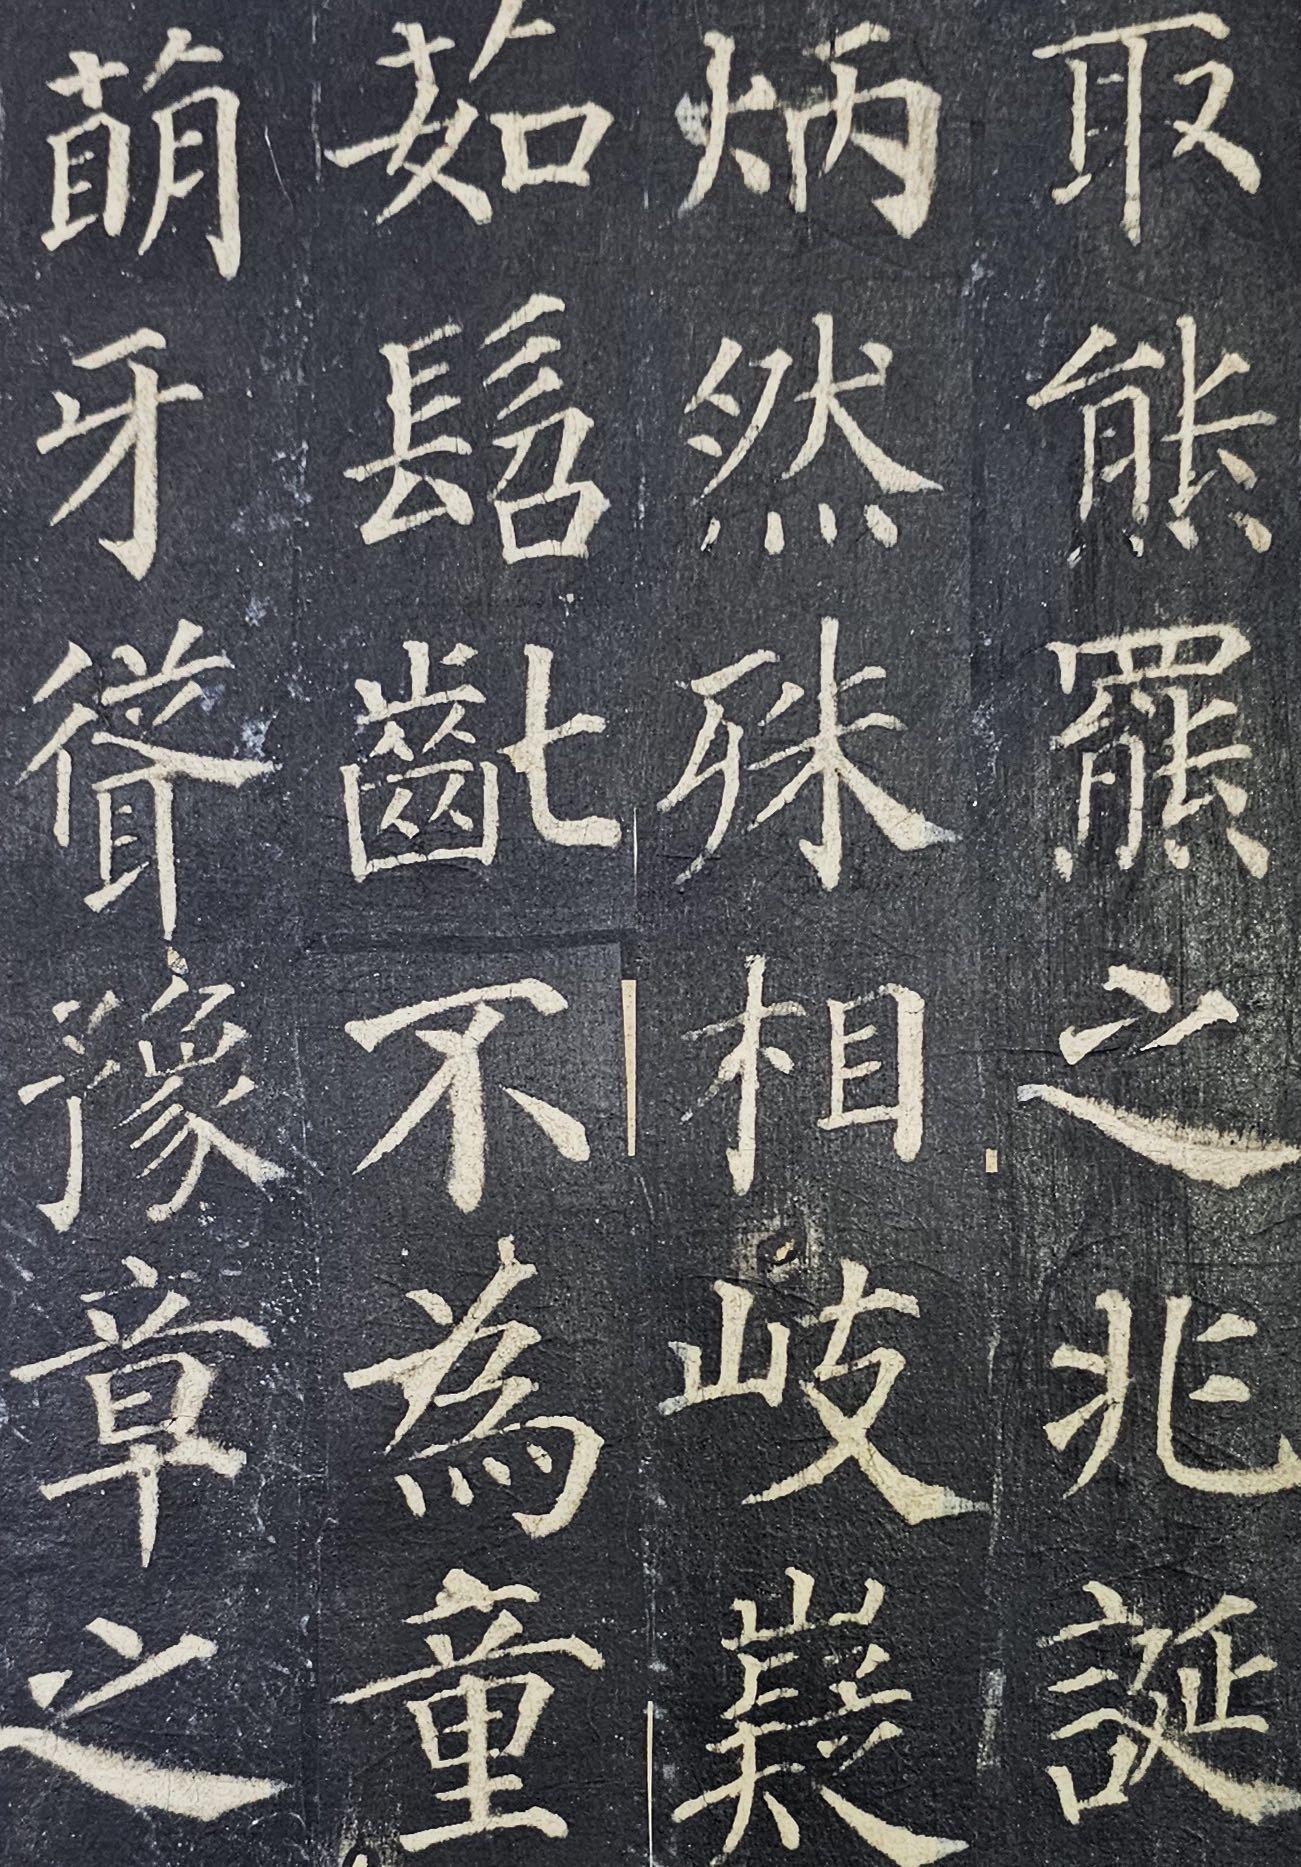 取熊羆之兆誕
炳然殊相岐嶷
始髫齔不為童
萌牙聳豫章之